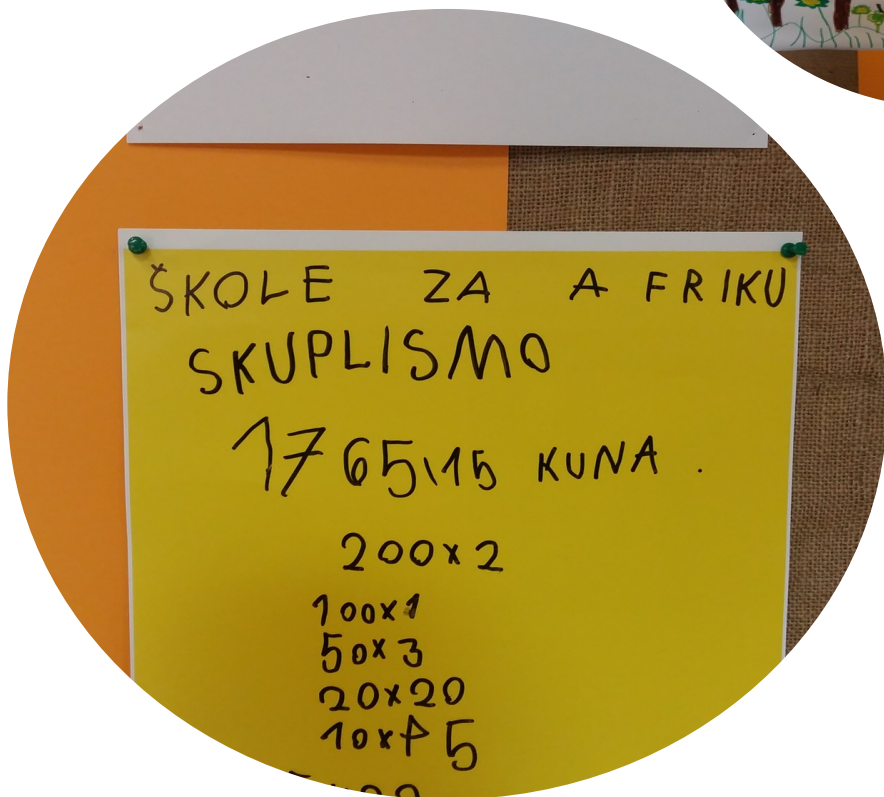 ŠKOLE ZA AFRIKU
SKUPLISMO
1765,15 KUNA .
200x2
100x1
50x3
20x20